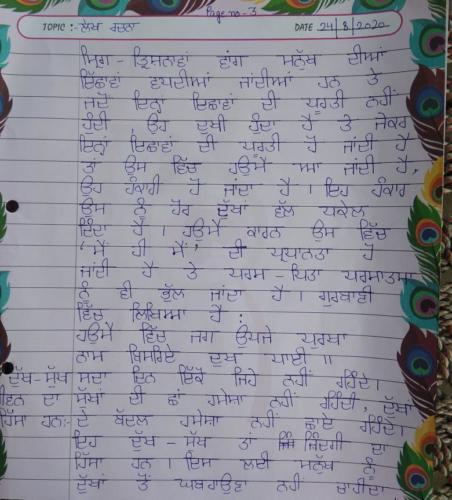 Page no - 3
TOPIC :- ਲੇਖ ਰਚਨਾ DATE 24/8/2020
ਮ੍ਰਿਗ - ਤ੍ਰਿਸ਼ਨਾਵਾਂ ਵਾਂਗ ਮਨੁੱਖ ਦੀਆਂ
ਇੱਛਾਵਾਂ ਵਧਦੀਆਂ ਜਾਂਦੀਆਂ ਹਨ ਤੇ
ਜਦੋਂ ਇਨ੍ਹਾਂ ਇਛਾਵਾਂ ਦੀ ਪੂਰਤੀ ਨਹੀਂ
ਹੁੰਦੀ, ਉਹ ਦੁਖੀ ਹੁੰਦਾ ਹੈ ਤੇ ਜੇਕਰ
ਇਨ੍ਹਾਂ ਇਛਾਵਾਂ ਦੀ ਪੂਰਤੀ ਹੋ ਜਾਂਦੀ ਹੈ
ਤਾਂ ਉਸ ਵਿੱਚ ਹਉਮੈ ਆ ਜਾਂਦੀ ਹੈ,
ਉਹ ਹੰਕਾਰੀ ਹੋ ਜਾਂਦਾ ਹੈ । ਇਹ ਹੰਕਾਰ
ਉਸ ਨੂੰ ਹੋਰ ਦੁੱਖਾਂ ਵੱਲ ਧਕੇਲ
ਦਿੰਦਾ ਹੈ । ਹਉਮੈ ਕਾਰਨ ਉਸ ਵਿੱਚ
'ਮੈਂ ਹੀ ਮੈਂ' ਦੀ ਪ੍ਰਧਾਨਤਾ ਹੋ
ਜਾਂਦੀ ਹੈ ਤੇ ਪਰਮ - ਪਿਤਾ ਪਰਮਾਤਮਾ
ਨੂੰ ਵੀ ਭੁੱਲ ਜਾਂਦਾ ਹੈ । ਗੁਰਬਾਣੀ
ਵਿੱਚ ਲਿਖਿਆ ਹੈ :
ਹਉਮੈ ਵਿੱਚ ਜਗ ਉਪਜੇ ਪੁਰਖਾ
ਨਾਮ ਬਿਸਰਿਏ ਦੁਖ ਪਾਈ ॥
ਦੁੱਖ-ਸੁੱਖ ਸਦਾ ਦਿਨ ਇੱਕੋ ਜਿਹੇ ਨਹੀਂ ਰਹਿੰਦੇ।
ਦਾ ਸੁੱਖਾਂ ਦੀ ਛਾਂ ਹਮੇਸ਼ਾ ਨਹੀਂ ਰਹਿੰਦੀ, ਦੁੱਖਾਂ
ਹਿੱਸਾ ਹਨ:- ਦੇ ਬੱਦਲ ਹਮੇਸ਼ਾ ਨਹੀਂ ਛਾਏ ਰਹਿੰਦੇ।
ਇਹ ਦੁੱਖ - ਸੁੱਖ ਤਾਂ ਜਿੰਦਗੀ ਦਾ
ਹਿੱਸਾ ਹਨ । ਇਸ ਲਈ ਮਨੁੱਖ ਨੂੰ
ਦੁੱਖਾਂ ਤੋਂ ਘਬਰਾਉਣਾ ਨਹੀਂ ਚਾਹੀਦਾ